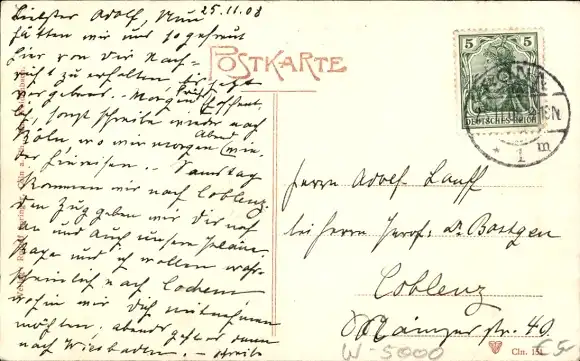 Liebster Adolf, Nun 25.11.08
hätten wir uns so gefreut
hier von Dir Nach-
richt zu erhalten bis jetzt
vergebens. - Morgen früh hoffent-
lich, sonst schreibe wieder nach
Köln, wo wir morgen Abend wie-
der hinreisen. - Samstag
kommen wir nach Coblenz.
den Zug geben wir Dir noch
an und auch unsere Pläne
Papa und ich wollen wahr-
scheinlich nach Cochem
wohin wir Dich mitnehmen
möchten. abends geht es dann
nach Wiesbaden. - schreibe
POSTKARTE
5 5
DEUTSCHES REICH
BONN
* 1 m
Herrn Adolf Lauff
bei Herrn Prof. Dr. Bostgen
Coblenz
Mainzerstr. 40.
W-5000
Cltn. 151